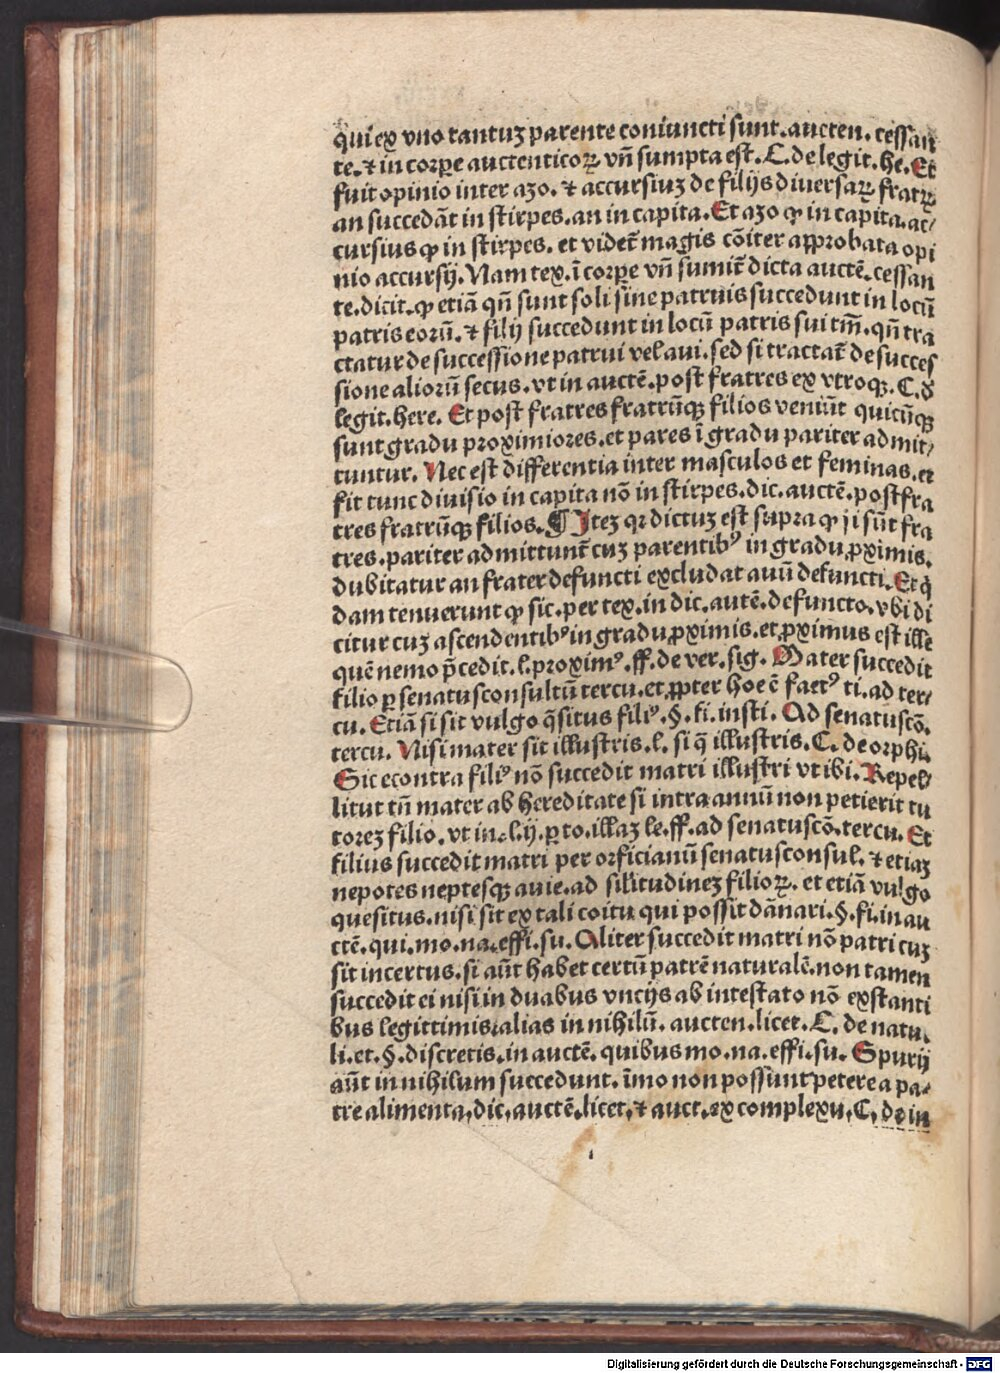 qui ex vno tantuꝫ parente coniuncti sunt. aucten. cessan
te. ⁊ in corꝑe auctenticoꝝ vn̄ sumpta est. C. de legit. he. Et
fuit opinio inter azo. ⁊ accursiuꝫ de filijs diuersaꝝ fratꝝ
an succedāt in stirpes. an in capita. Et azo ꝙ in capita. ac/
cursius ꝙ in stirpes. et videt̄ magis cōiter approbata opi
nio accursij. Nam tex. ī corꝑe vn̄ sumit̄ dicta auctē. cessan
te. dicit. ꝙ etiā qn̄ sunt soli sine patruis succedunt in locū
patris eorū. ⁊ filij succedunt in locū patris sui tm̄. qn̄ tra
ctatur de successione patrui vel aui. sed si tractat̄ de succes
sione aliorū secus. vt in auctē. post fratres ex vtroqꝫ. C. ð
legit. here. Et post fratres fratrūqꝫ filios veniūt quicūqꝫ
sunt gradu proximiores. et pares ī gradu pariter admit/
tuntur. Nec est differentia inter masculos et feminas. et
fit tunc diuisio in capita nō in stirpes. dic. auctē. post fra
tres fratrūqꝫ filios. ¶ Iteꝫ qꝛ dictuꝫ est supra ꝙ ij sūt fra
tres. pariter admittunt̄ cuꝫ parentibꝰ in gradu ꝓximis.
dubitatur an frater defuncti excludat auū defuncti. Et q̄
dam tenuerunt ꝙ sic. per tex. in dic. autē. defuncto. vbi di
citur cuꝫ ascendentibꝰ in gradu ꝓximis. et ꝓximus est ille
quē nemo p̄cedit. l. proximꝰ. ff. de ver. sig. Mater succedit
filio ꝑ senatusconsultū tercu. et ꝓpter hoc ē factꝰ ti. ad ter/
cu. Etiā si sit vulgo q̄situs filiꝰ. §. fi. insti. Ad senatuscō.
tercu. Nisi mater sit illustris. l. si q̄ illustris. C. de orphi.
Sic econtra filiꝰ nō succedit matri illustri vt ibi. Repel/
litut tn̄ mater ab hereditate si intra annū non petierit tu
toreꝫ filio. vt in. l. ij. ꝑ to. illaꝫ le. ff. ad senatuscō. tercu. Et
filius succedit matri per orficianū senatusconsul. ⁊ etiaꝫ
nepotes neptesqꝫ auie. ad sil̄itudineꝫ filioꝝ. et etiā vulgo
quesitus. nisi sit ex tali coitu qui possit dānari. §. fi. in au
ctē. qui. mo. na. effi. su. Aliter succedit matri nō patri cuꝫ
sit incertus. si aūt habet certū patrē naturalē. non tamen
succedit ei nisi in duabus vncijs ab intestato nō extanti
bus legittimis: alias in nihilū. aucten. licet. C. de natu.
li. et. §. discretis. in auctē. quibus mo. na. effi. su. Spurij
aūt in nihilum succedunt. īmo non possunt petere a pa/
tre alimenta, dic, auctē, licet, ⁊ auct. ex complexu, C, de in
Digitalisierung gefördert durch die Deutsche Forschungsgemeinschaft - DFG